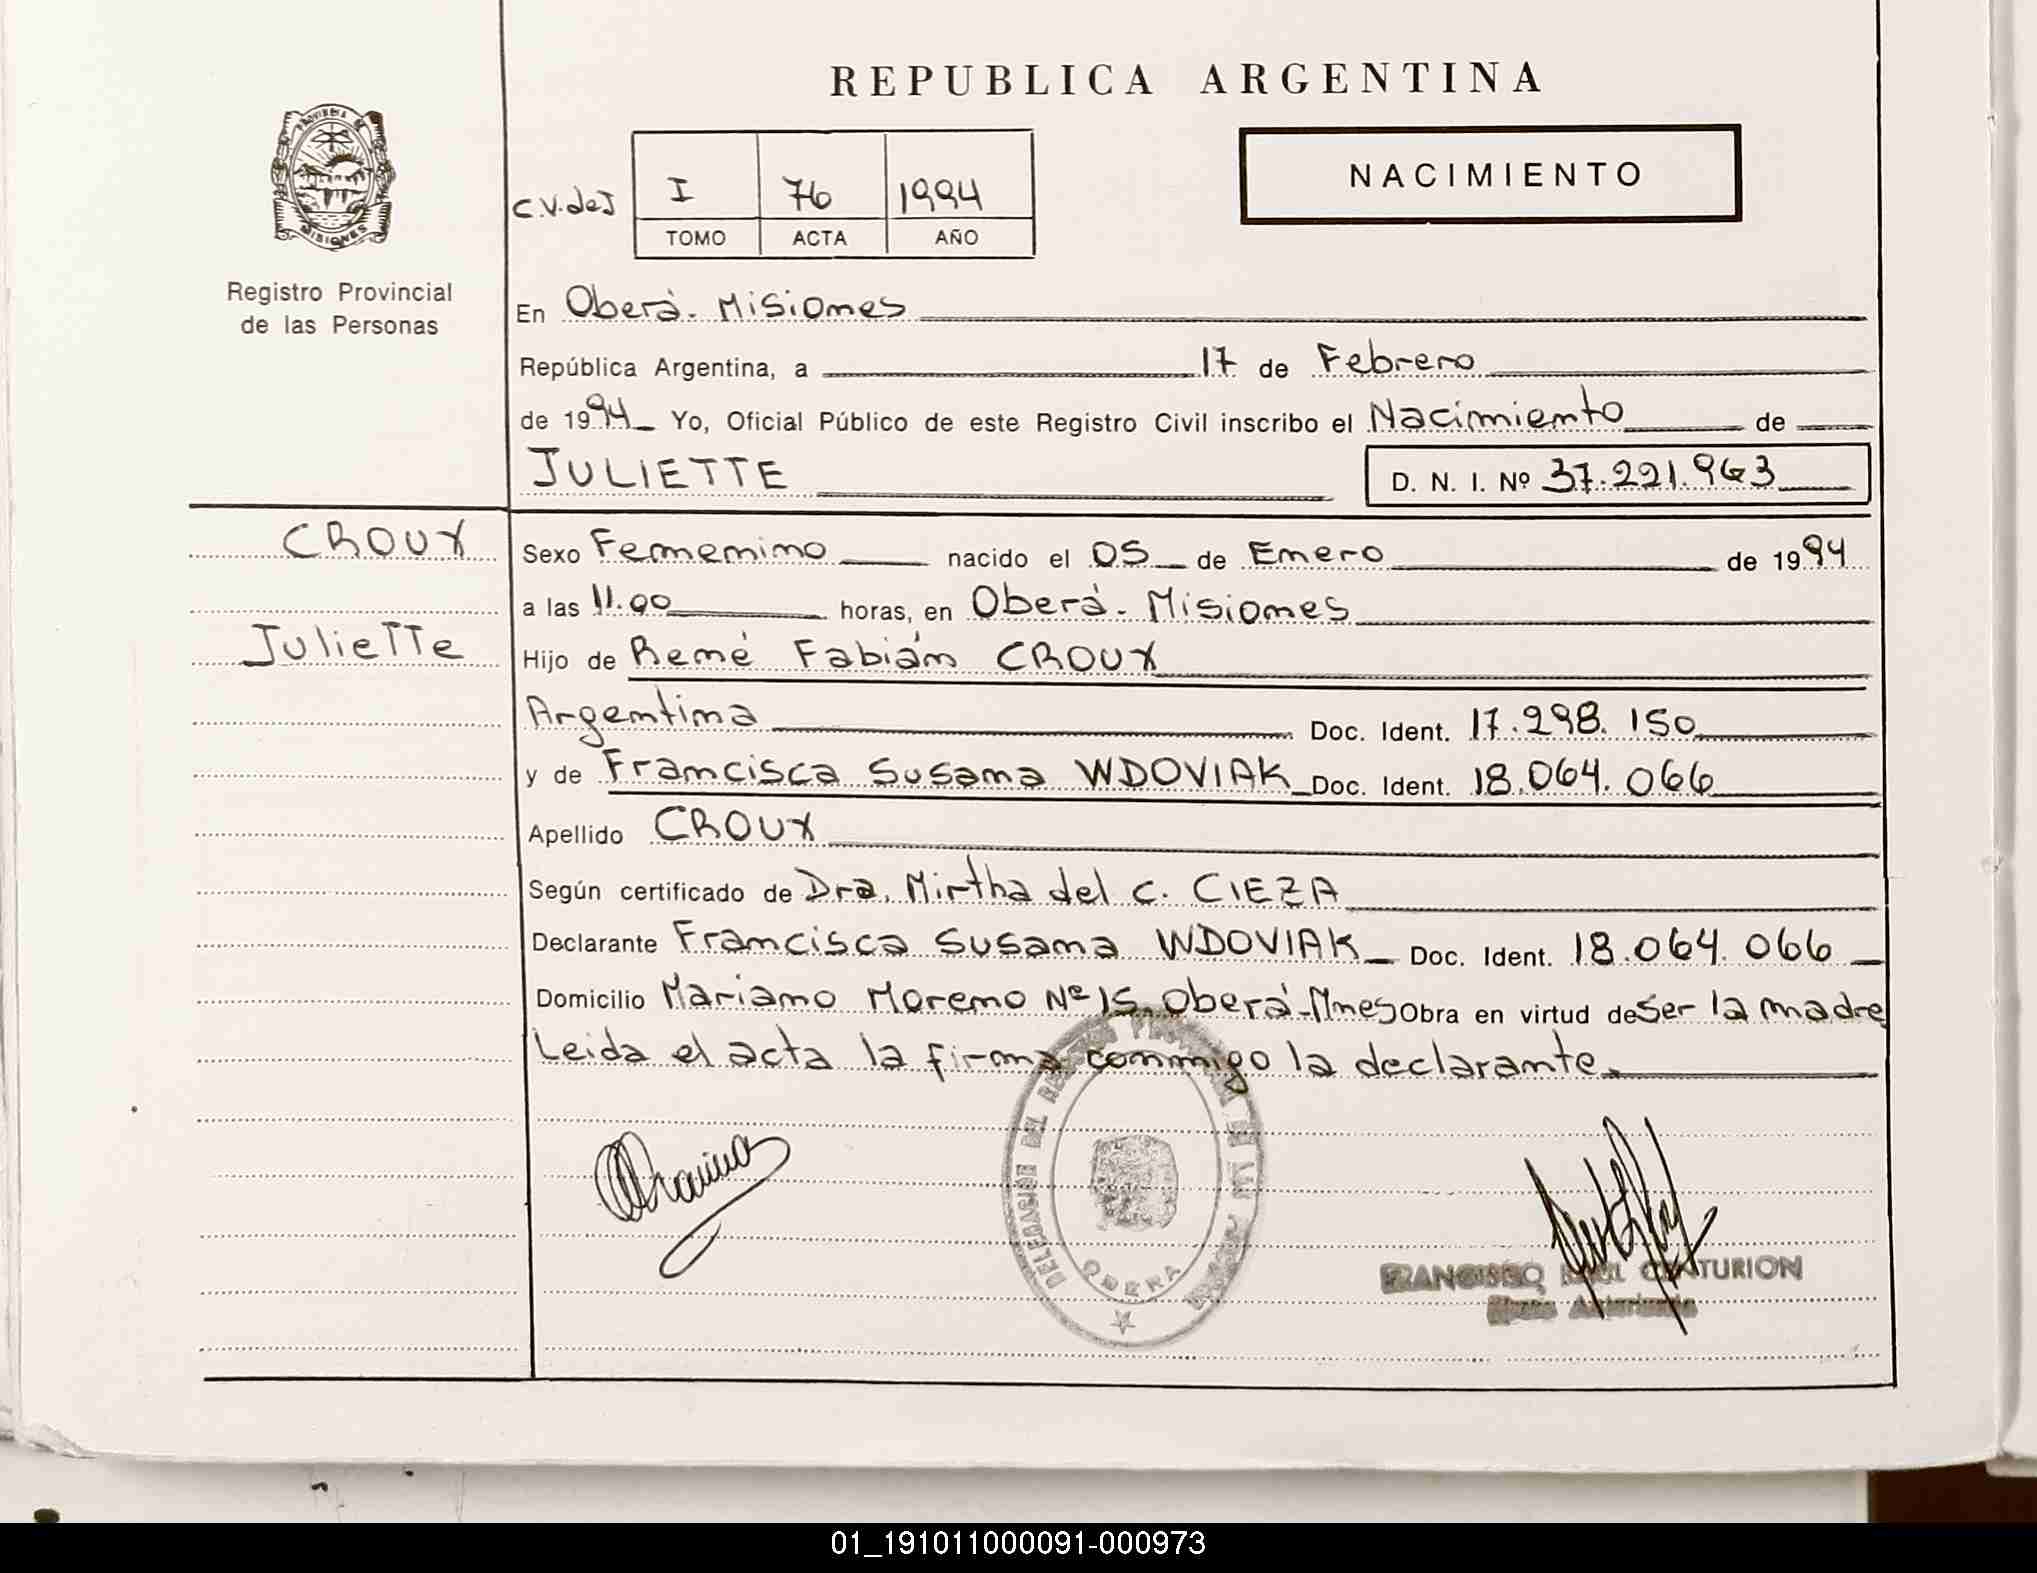 REPUBLICA ARGENTINA
PROVINCIA DE
MISIONES
Registro Provincial
de las Personas
NACIMIENTO
C.V. de J I 76 1994
TOMO ACTA AÑO
En Oberá. Misiones
República Argentina, a 17 de Febrero
de 1994 Yo, Oficial Público de este Registro Civil inscribo el Nacimiento de
JULIETTE D. N. I. Nº 37.221.963
CROUX
Juliette
Sexo Femenino nacido el 05 de Enero de 1994
a las 11.00 horas, en Oberá. Misiones
Hijo de René Fabián CROUX
Argentina Doc. Ident. 17.298.150
y de Francisca Susana WDOVIAK Doc. Ident. 18.064.066
Apellido CROUX
Según certificado de Dra. Mirtha del C. CIEZA
Declarante Francisca Susana WDOVIAK Doc. Ident. 18.064.066
Domicilio Mariano Moreno Nº 15. Oberá-Mnes Obra en virtud de ser la madre
Leida el acta la firma conmigo la declarante.
DELEGACION DEL REGISTRO PROVINCIAL DE LAS PERSONAS
OBERA
FRANCISCO RAUL CENTURION
01_191011000091-000973